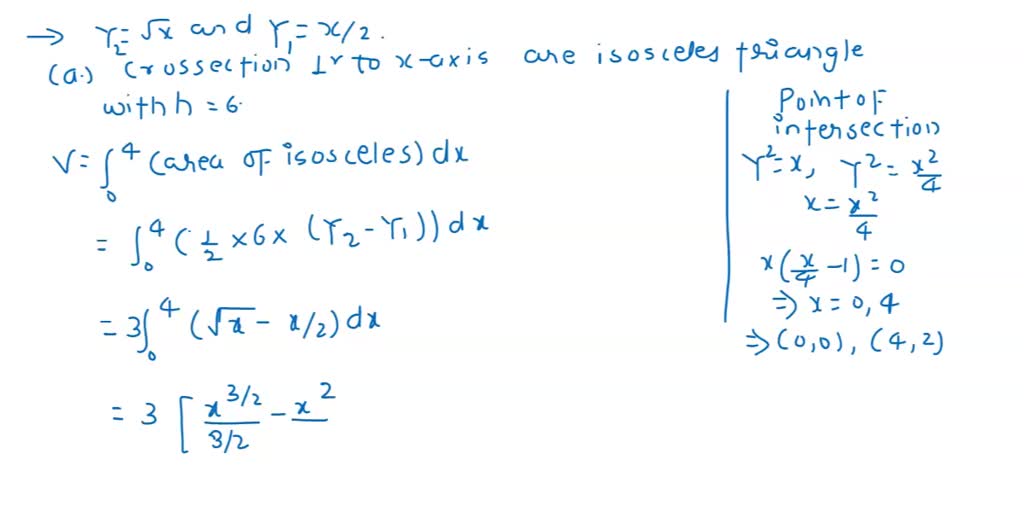 → Y₂ = √x and Y₁ = x/2.
(a.) Crossection ⊥r to x-axis are isosceles triangle
with h = 6.
V = ∫₀⁴ (area of isosceles) dx
= ∫₀⁴ (1/2 × 6 × (Y₂ - Y₁)) dx
= 3∫₀⁴ (√x - x/2) dx
= 3 [ x^3/2 / 3/2 - x^2
Point of
intersection
Y² = x, Y² = x²/4
x = x²/4
x(x/4 - 1) = 0
⇒ x = 0, 4
⇒ (0,0), (4,2)